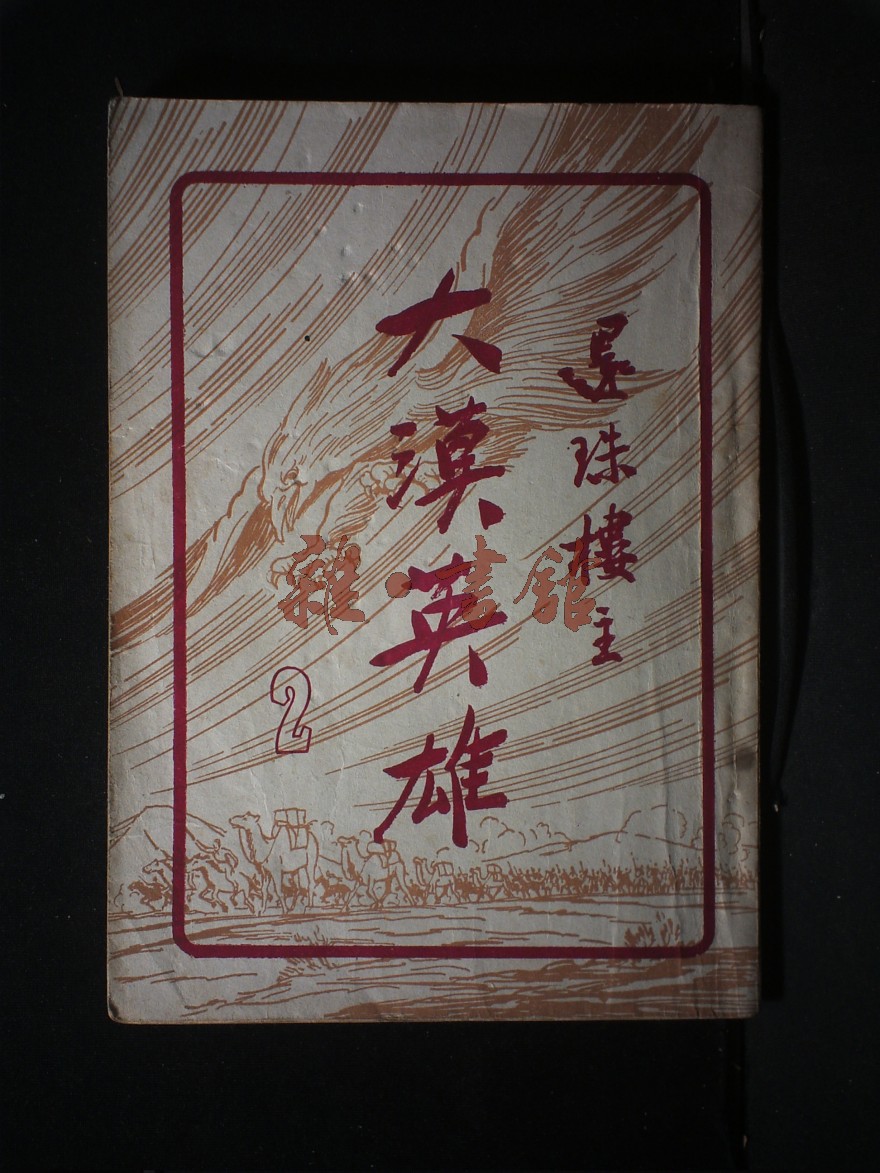 還珠樓主
大漠英雄
2
雜·書館